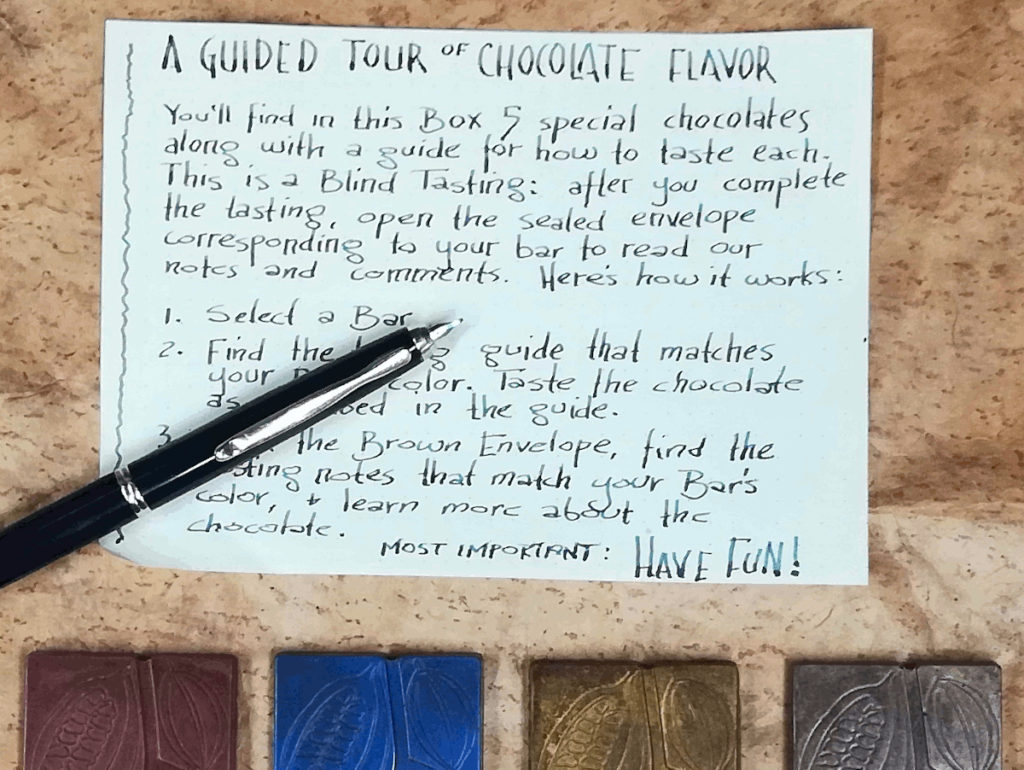 A GUIDED TOUR OF CHOCOLATE FLAVOR
You'll find in this Box 5 special chocolates
along with a guide for how to taste each.
This is a Blind Tasting: after you complete
the tasting, open the sealed envelope
corresponding to your bar to read our
notes and comments. Here's how it works:
1. Select a Bar
2. Find the guide that matches
your color. Taste the chocolate
as in the guide.
3. the Brown Envelope, find the
notes that match your Bar's
color, + learn more about the
chocolate.
MOST IMPORTANT: HAVE FUN!